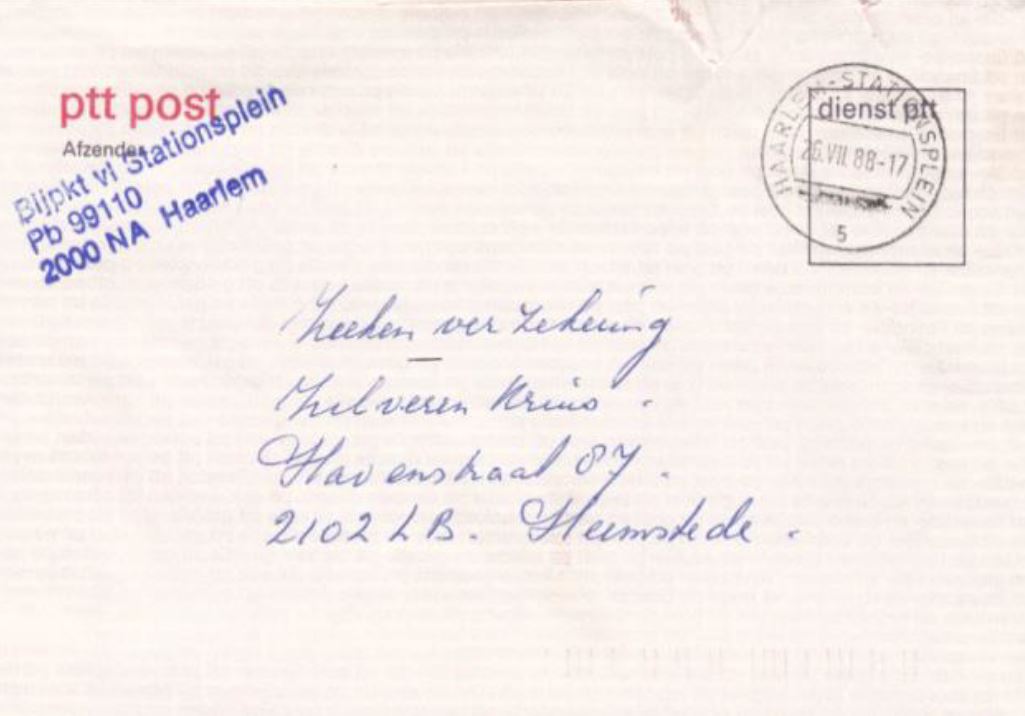 ptt post
Afzender
Bijpkt vl Stationsplein
Pb 99110
2000 NA Haarlem
HAARLEM-STATIONSPLEIN
dienst ptt
26.VII.88-17
5
Zieken verzekering
Zilveren Kruis.
Havenstraat 87.
2102 LB. Heemstede.